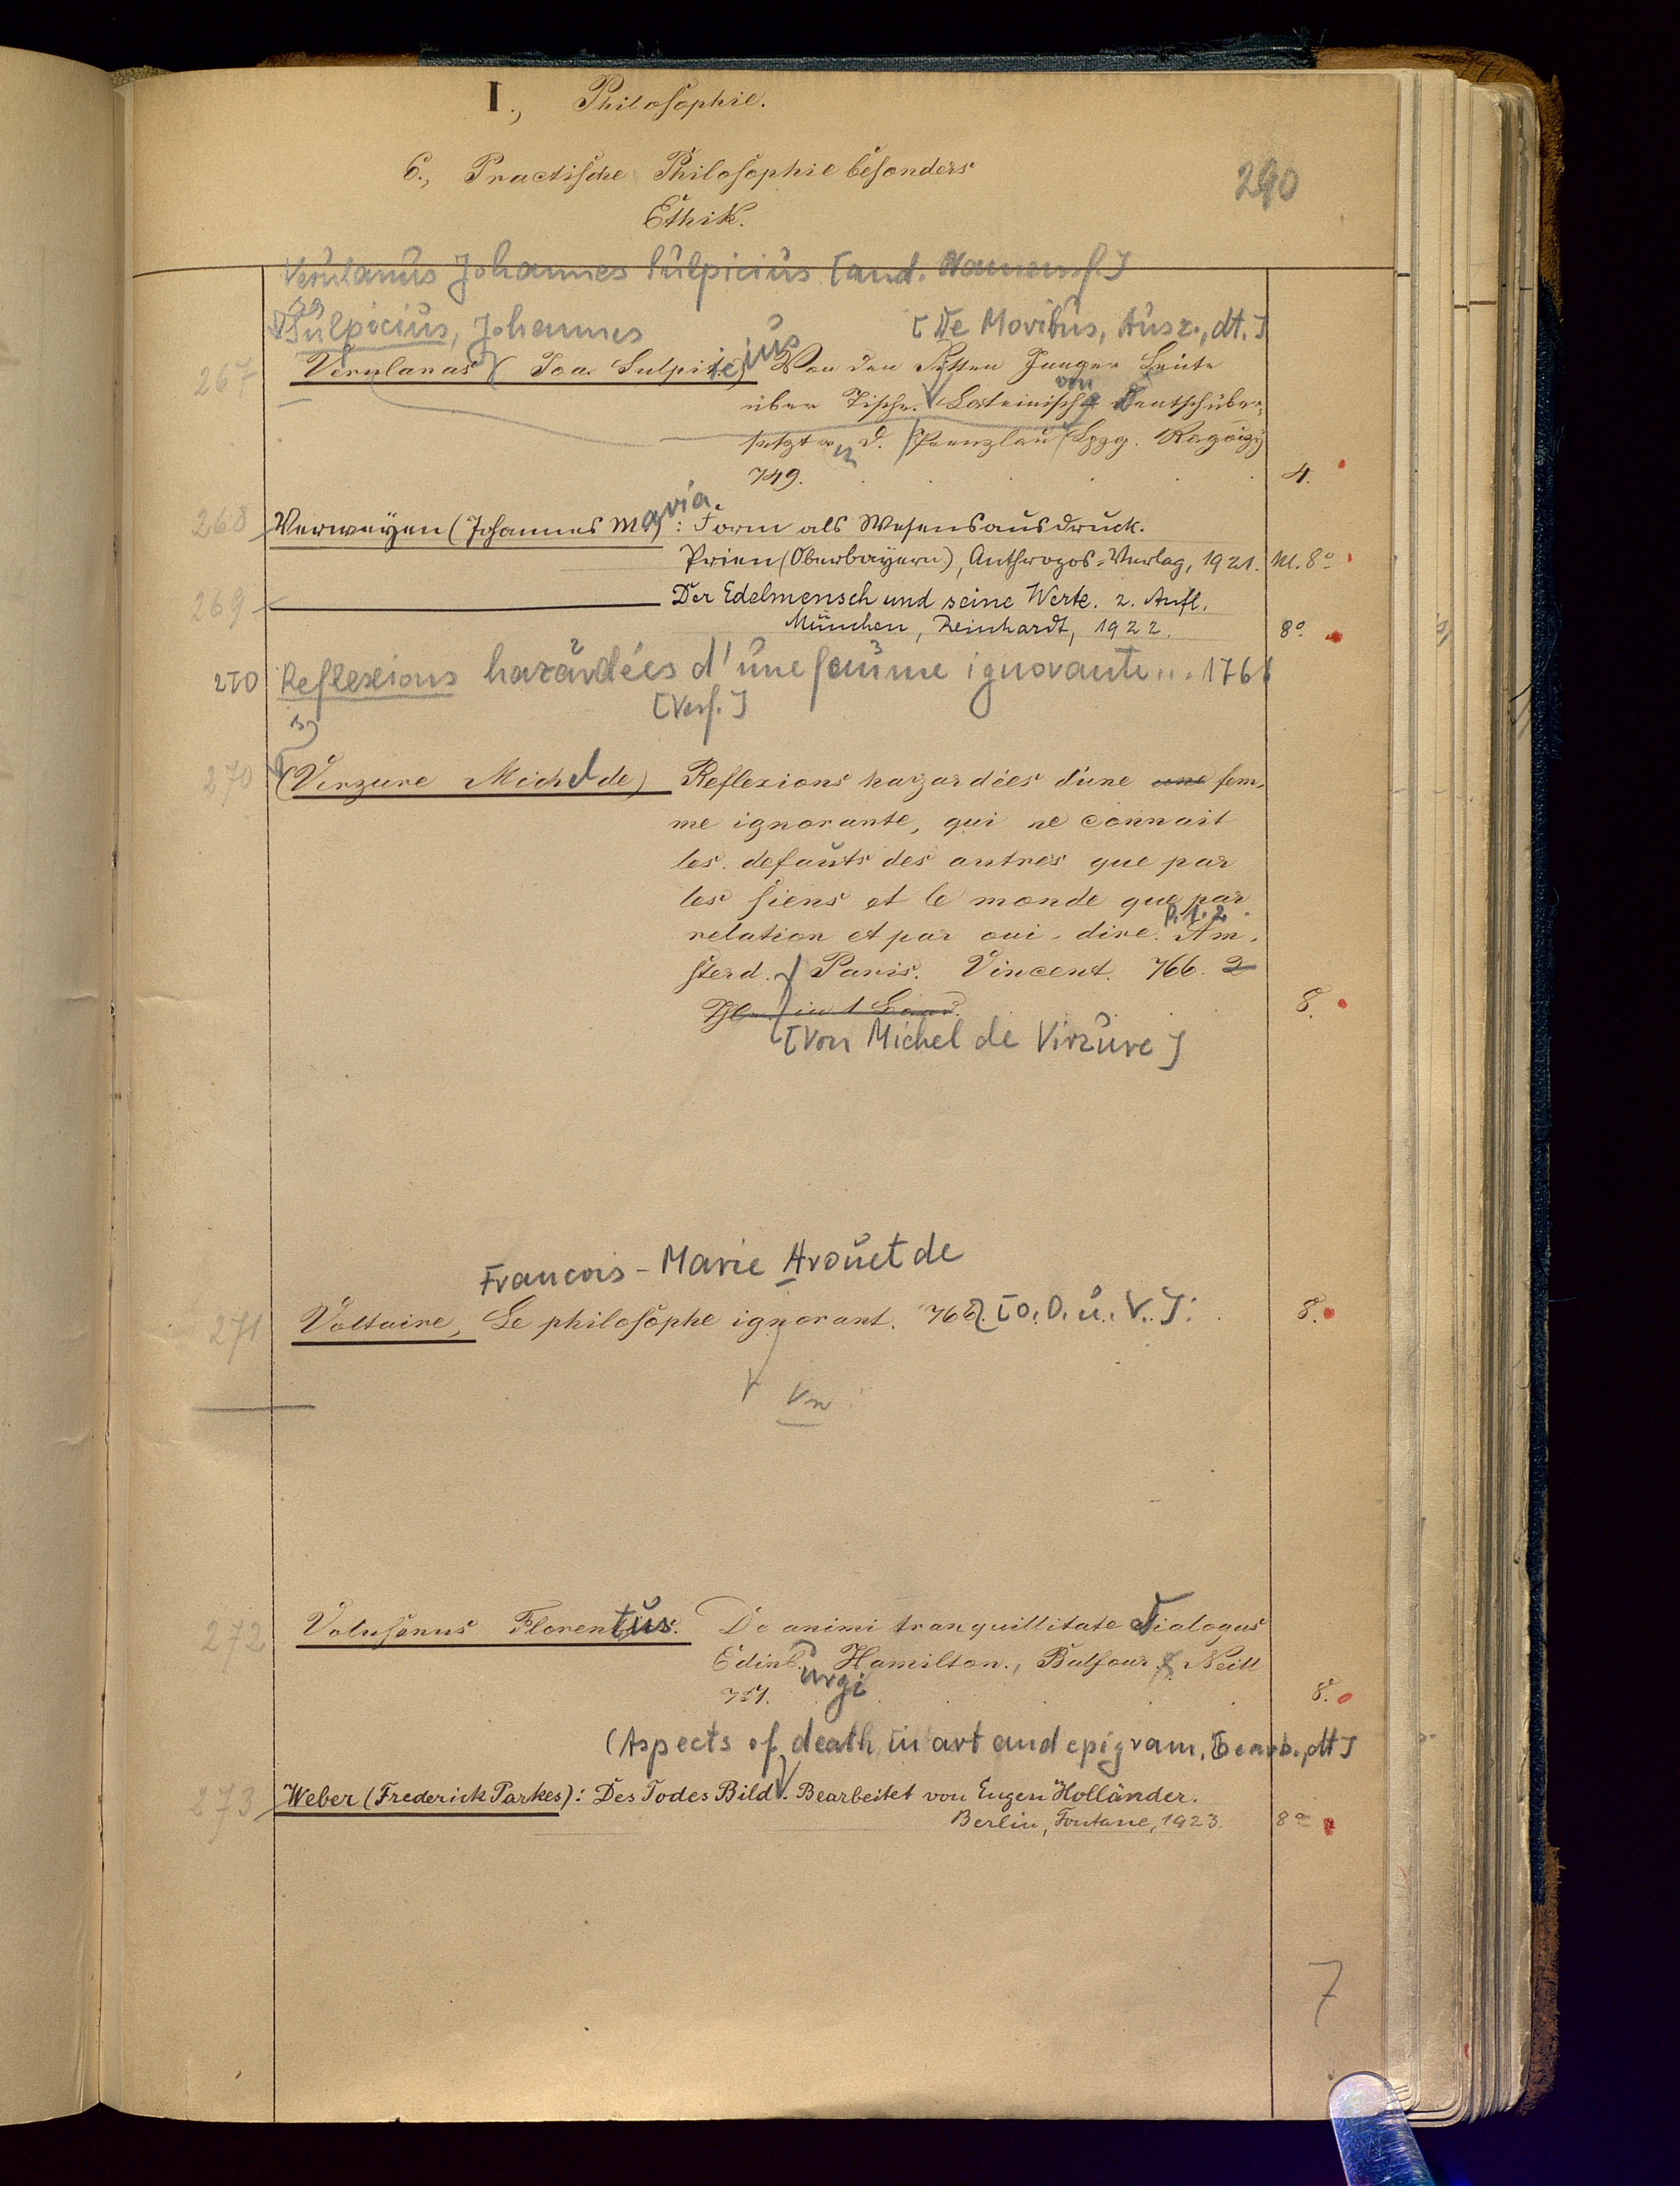 I., Philosophie.
6., Practische Philosophie besonders
Ethik.
290
Verulanus Johannes Sulpicius [and. Namensf.]
Sulpicius, Johannes [De Moribus, Ausz., dt.]
267 Verulanas (Joa. Sulpitius) Von den Sitten Junger Leute
über Tische. Lateinisch von Deutsch über-
setzt v. d. Prenzlau Lpzg. Ragoczy
749. 4.
268 Verweyen (Johannes Maria): Form als Wesensausdruck.
Prien (Oberbayern), Anthropos-Verlag, 1921. kl. 8°
269 Der Edelmensch und seine Werte. 2. Aufl.
München, Reinhardt, 1922. 8°
270 Reflexions hazardées d'une femme ignorante... 1766
[Verf.]
270 (Virzure Michel de) Reflexions hazardées d'une une fem-
me ignorante, qui ne connait
les defauts des autres que par
les siens et le monde que par
relation et par oui-dire. P. 1. 2. Am-
sterd. Paris. Vincent. 766. 2
Thle in 1 Band. 8.
[Von Michel de Virzure]
François-Marie Arouet de
271 Voltaire, Le philosophe ignorant. 766. [o. O. u. V.]. 8.
272 Volusenus Florentius. De animi tranquillitate Dialogus
Edinburgi Hamilton., Balfour & Neill
751. 8.
(Aspects of death in art and epigram, Bearb., dt]
273 Weber (Frederick Parkes): Des Todes Bild. Bearbeitet von Eugen Holländer.
Berlin, Fontane, 1923. 8°
7